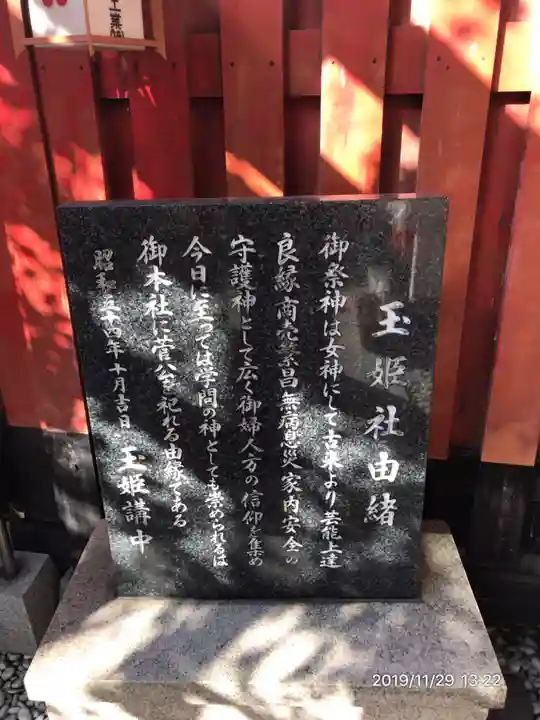 玉姫社由緒
御祭神は女神にして古来より芸能上達
良縁商売繁昌無病息災家内安全の
守護神として広く御婦人方の信仰を集め
今日に至っては学問の神としても崇められるは
御本社に菅公を祀れる由縁である
昭和五十四年十月吉日 玉姫講中
工業
2019/11/29 13:22